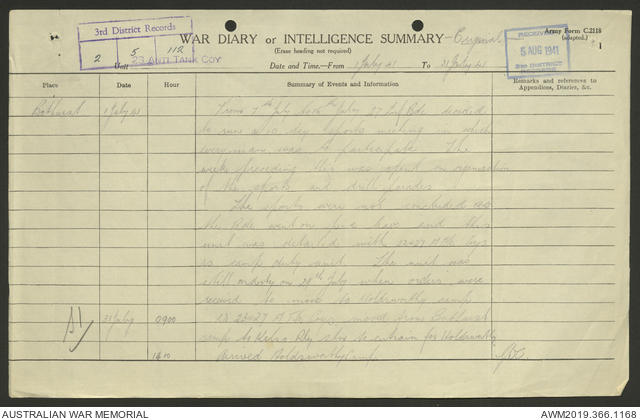 3rd District Records
2 5 112
WAR DIARY or INTELLIGENCE SUMMARY - Original
Army Form C.2118
(adapted.)
(Erase heading not required)
RECEIVED
5 AUG 1941
3RD DISTRICT
RECORDS
1
Unit 23 ANTI TANK COY
Date and Time.—From 1 July 41 To 31 July 41
Place Date Hour Summary of Events and Information Remarks and references to
Appendices, Diaries, &c.
Bathurst 1 July 41 From 7th July to 16th July 27 Inf Bde decided
to run a 10 day sports meeting in which
every man was to participate. The
week preceding this was spent on organisation
of the sports and drill parades
The sports were not concluded as
the Bde went on leave and this
unit was detailed with 22 & 27 A Tk Coys
as camp duty unit. The unit was
still on duty on 29th July when orders were
received to move to Holdsworthy camp
31 July 0900 22 23 & 27 A Tk Coys moved from Bathurst
camp to Kelso Rly stn to entrain for Holdsworthy
1400 Arrived Holdsworthy Camp
AUSTRALIAN WAR MEMORIAL
AWM2019.366.1168